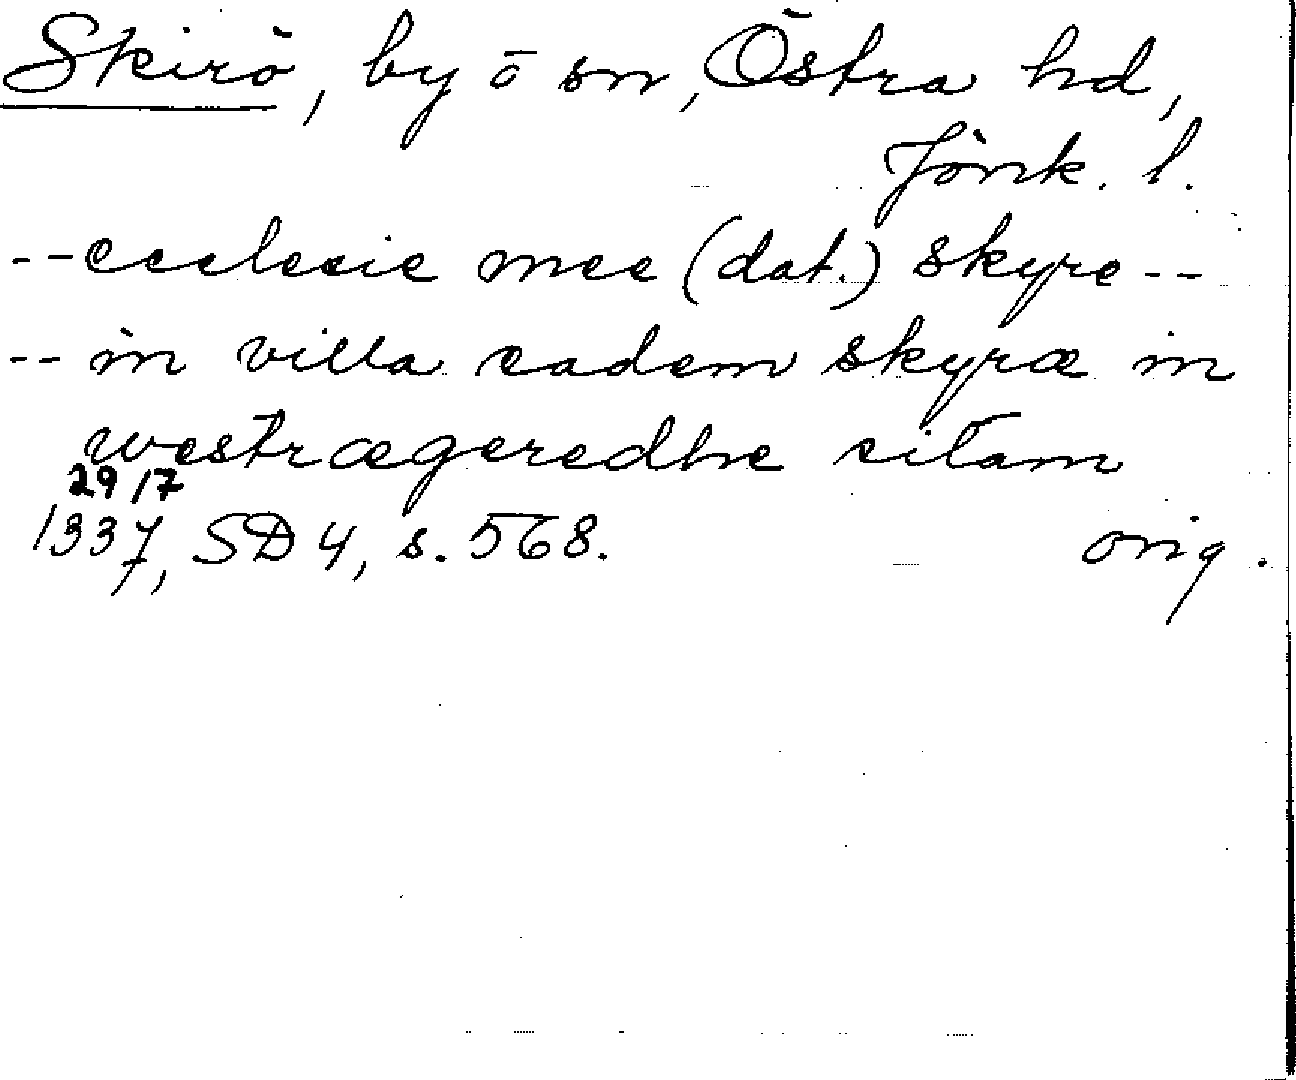 Skirö, by ō sn, Östra hd,
Jönk. l.
--ecclesie mee (dat.) skyre--
--in villa eadem skyræ in
westrægeredhe sitam
29/7
1337, SD 4, s. 568. orig.